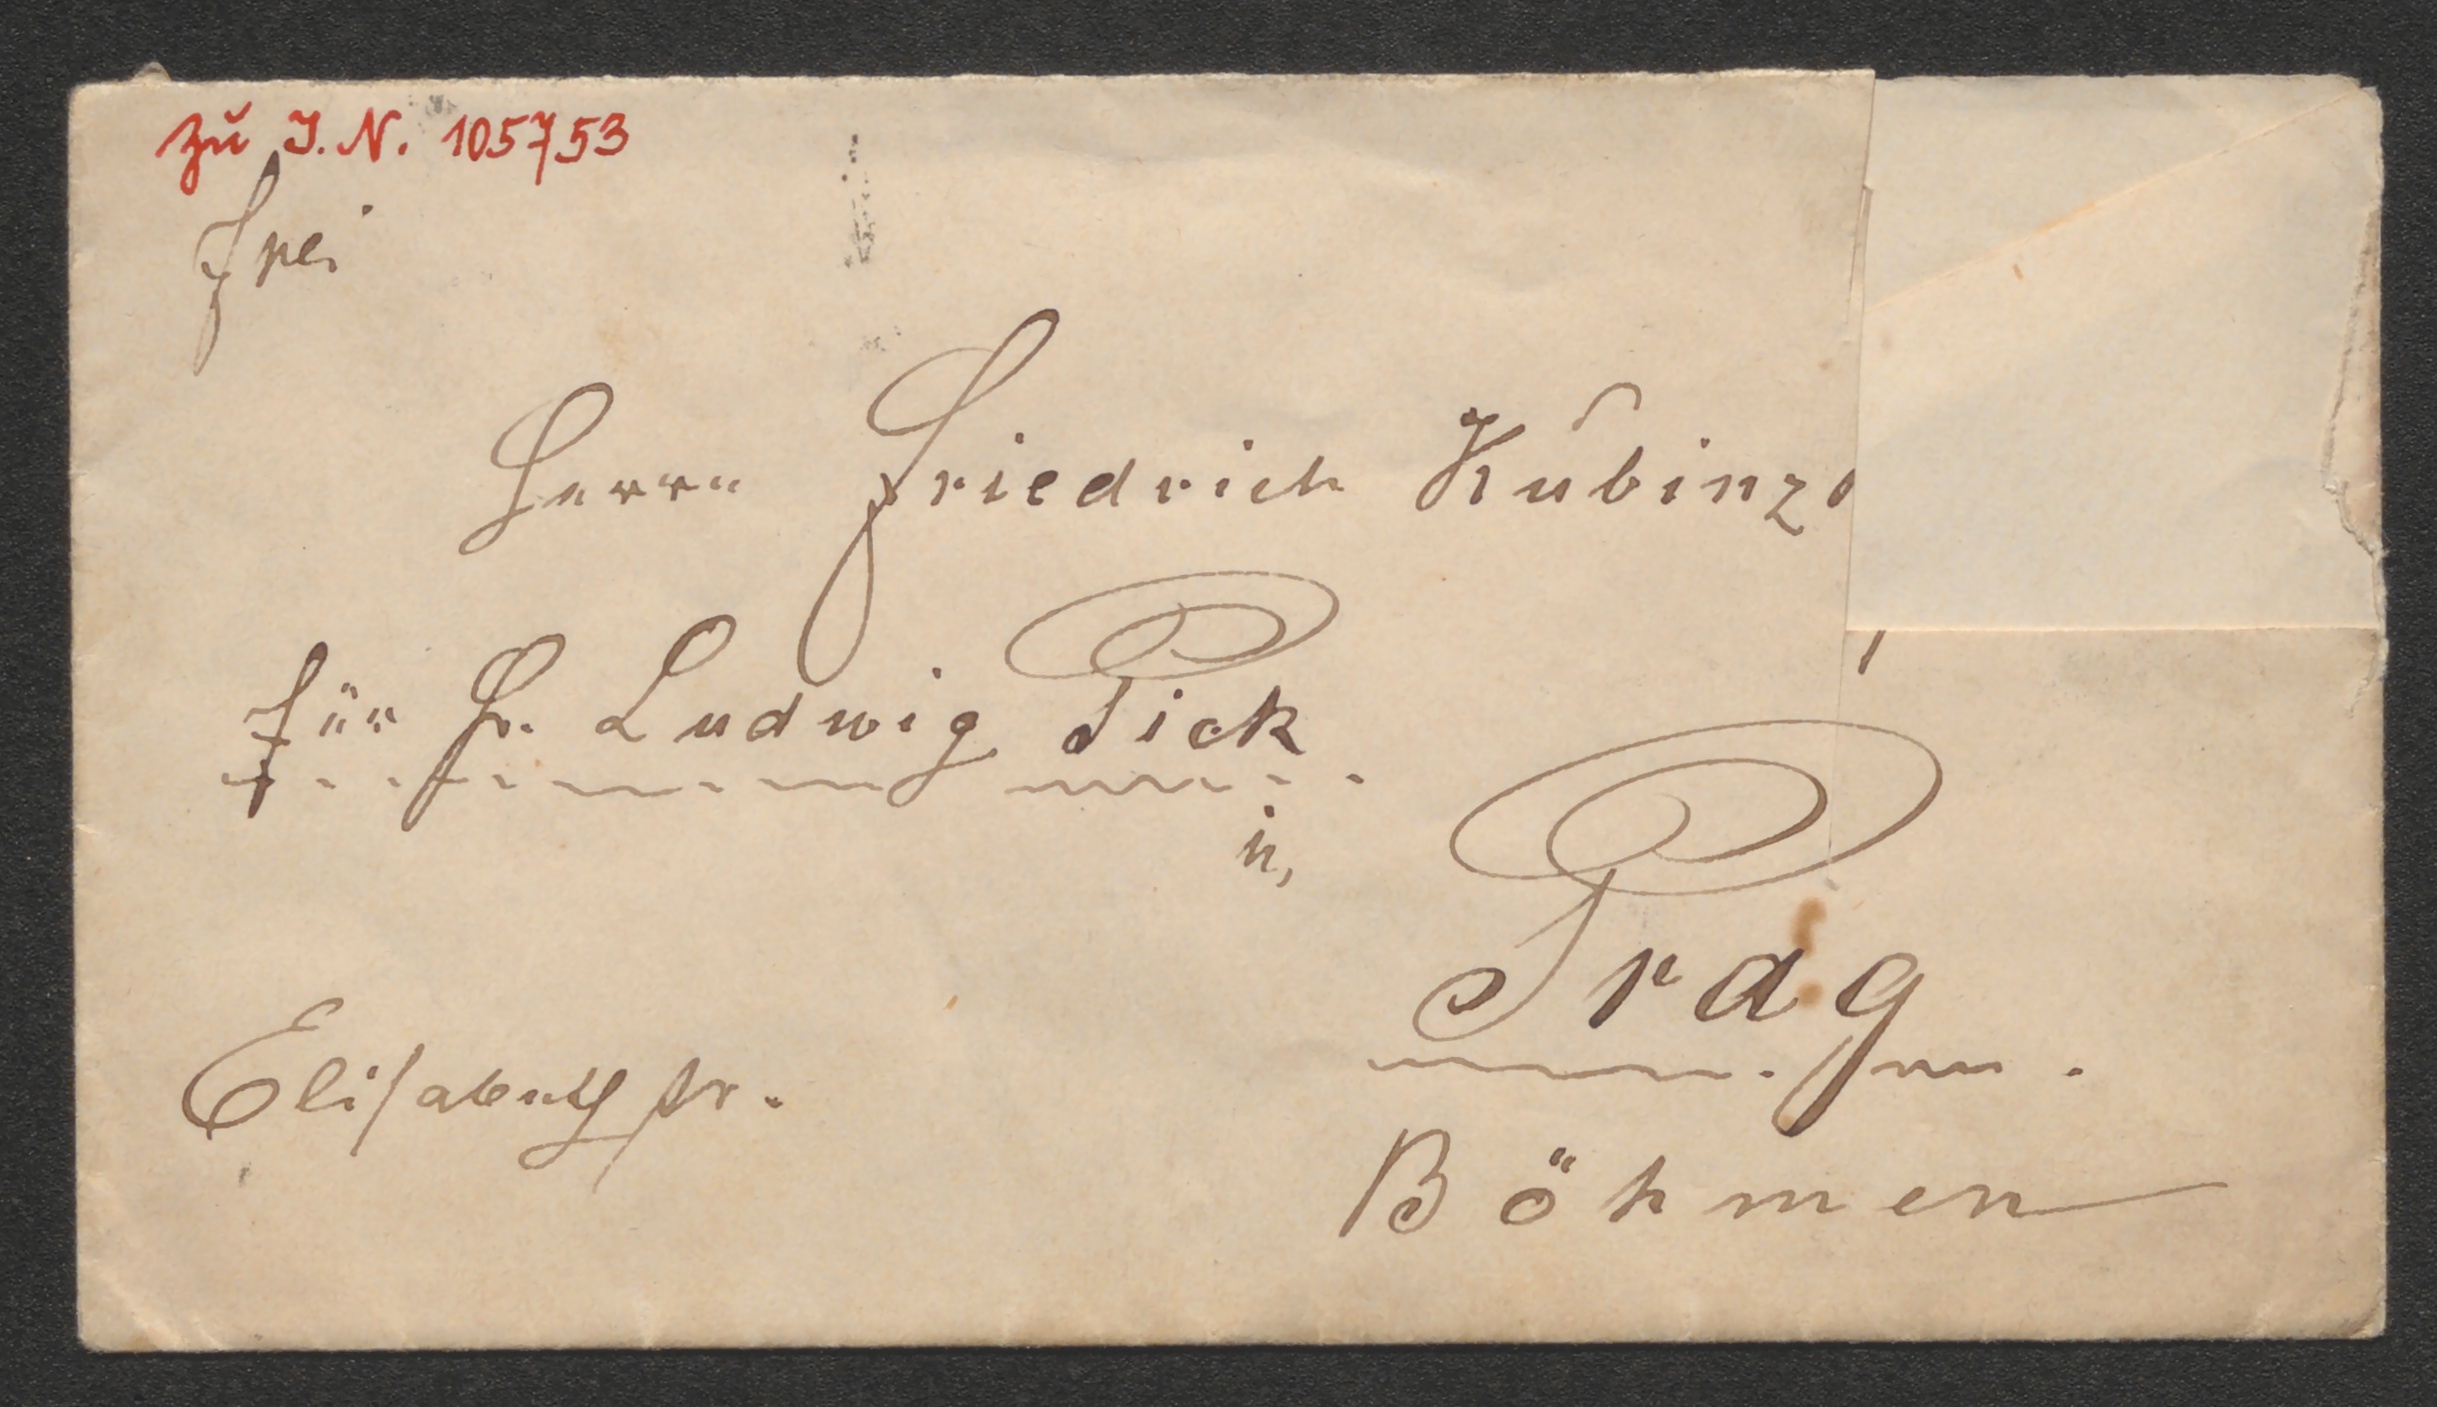 Zu I.N. 105753
frei
Herrn Friedrich Kubinz
für H. Ludwig Pick
in,
Prag
Böhmen
Elisabeth str.